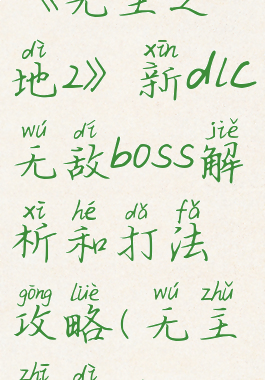 《无主之
dì xīn
地2》 新dlc
wú dí jiě
无敌boss解
xī hé dǎ fǎ
析和打法
gōng lüè wú zhǔ
攻略(无主
zhī dì